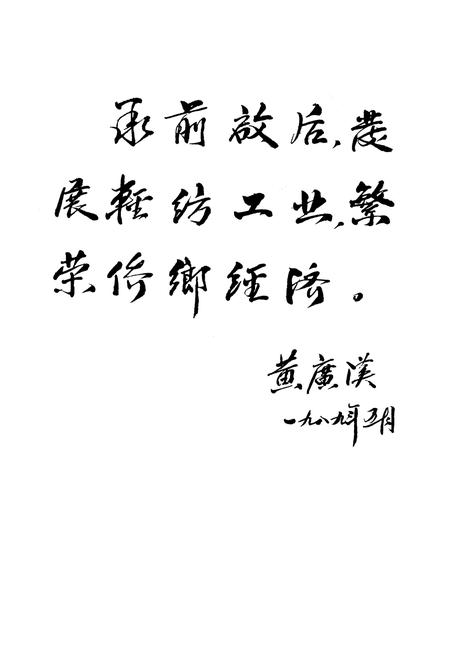 承前啟后,發
展輕紡工业,繁
荣侨鄉經济。
黄廣漢
一九八九年五月